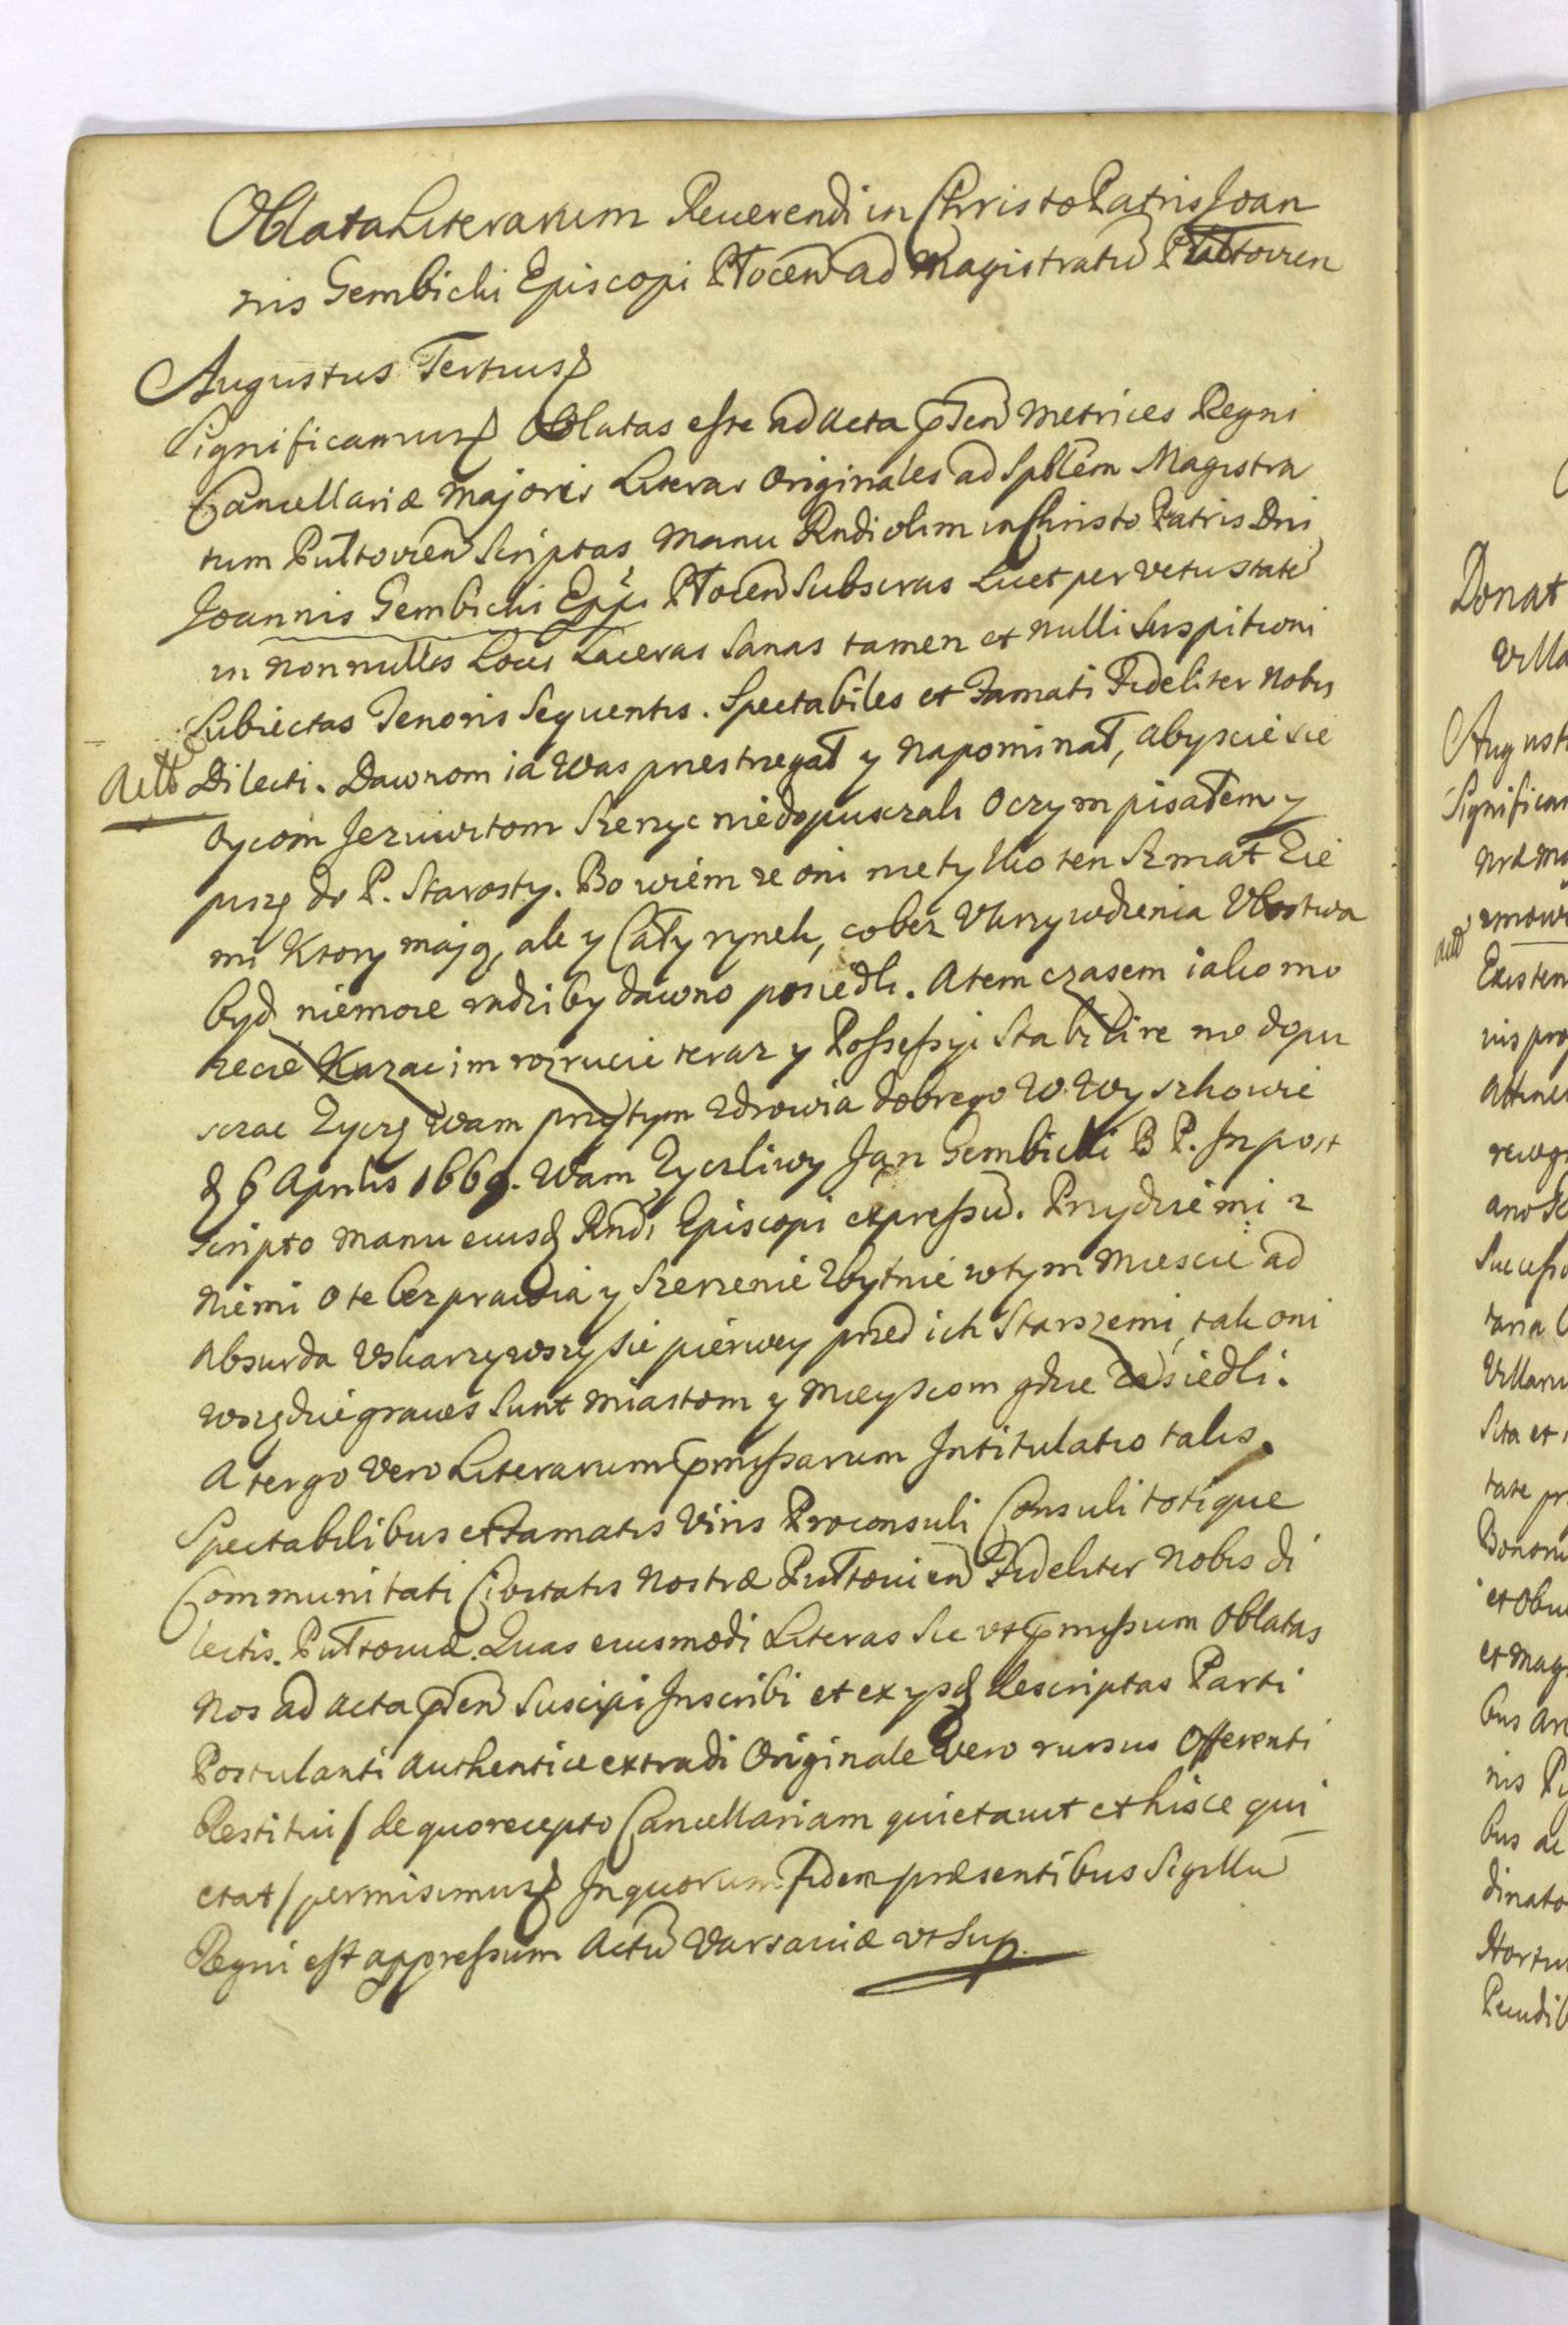 Oblata Literarum Reuerendi in Christo Patris Joan
nis Gembicki Episcopi Płocen ad Magistratū Pułtovien
Augustus Tertius
Significamus Oblatas esse ad Acta pnten Metrices Regni
Cancellariæ Majoris Literas Originales ad Spblem Magistra
tum Pułtovien Scriptas Manu Rndi olim in Christo Patris Dni
Joannis Gembicki Eppi Płocen Subscras Licet per vetustatē
in nonnullis Locis Laceras Sanas tamen et nulli Suspitioni
Subiectas Tenoris Sequentis. Spectabiles et Famati Fideliter Nobis
Dilecti. Dawnom ia Was przestrzegał y napominał, abyscie sie
Oycom Jezuwitom Szerzyc niedopuszczali Oczym pisałem y
piszę do P. Starosty. Bo wiem ze oni nietylko ten Szmat Zie
mi Ktory mają, ale y Cały rynek, co bez Ukrzywdzenia Ubostwa
bydz niemoze radziby dawno posiedli. Atem czasem iako mo
zecie Kazac im rozrucic teraz y Possessyi Stabilire nie dopu
szczac Zyczę Wam przytym Zdrowia dobrego W Wyszkowie
d 6 Aprilis 1669. Wam Zyczliwy Jan Gembicki B P. In post
scripto manu eiusd Rndi Episcopi expressū. Przydzie mi z
Niemi o te bezprawia y Szerzenie Zbytnie w tym Miescie ad
Absurda Uskarzywszy sie pierwey przed ich Starszemi, tak oni
wszędzie graues Sunt Miastom y Mieyscom gdzie Zasiedli.
A tergo Vero Literarum pmissarum Intitulatio talis.
Spectabilibus et Famatis Viris Proconsuli Consuli totique
Communitati Civitatis Nostræ Pułtouien Fideliter Nobis di
lectis. Pułtouiæ. Quas eiusmodi Literas Sic ut pmissum Oblatas
Nos ad Acta pnten Suscipi Inscribi et ex ysd descriptas Parti
Postulanti Authentice extradi Originale Vero rursus Offerenti
Restitui / de quo recepto Cancellariam quietauit et hisce qui
etat / permisimus In quorum Fidem præsentibus Sigillū
Regni est appressum Actū Varsaviæ ut Sup.